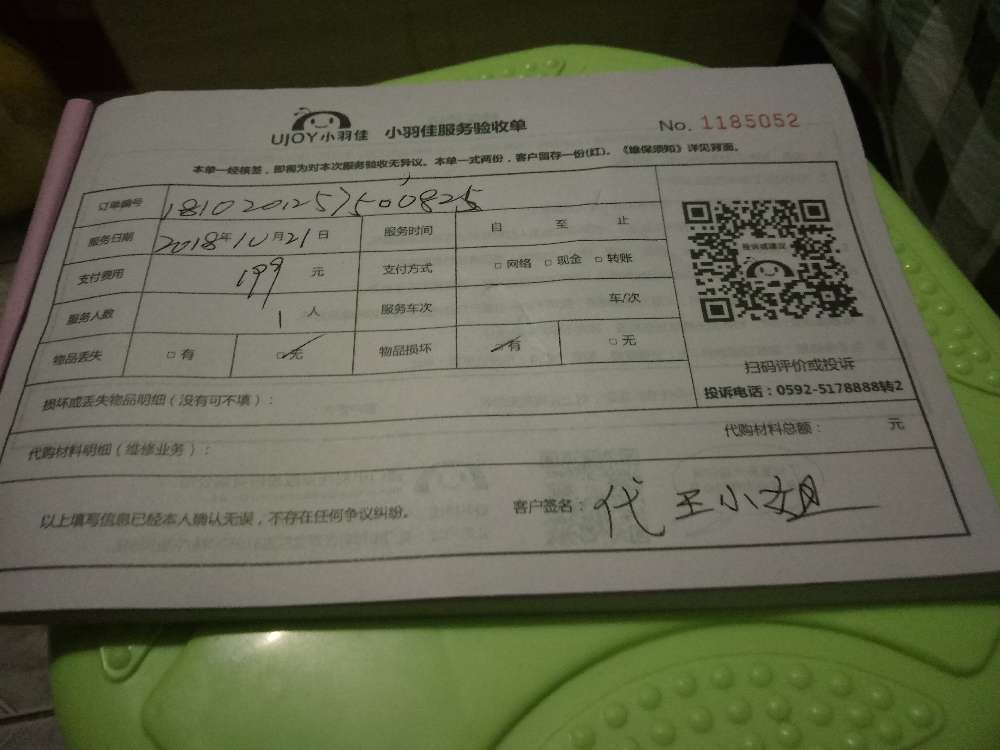 UJOY小羽佳 小羽佳服务验收单 No. 1185052
本单一经核签，即视为对本次服务验收无异议。本单一式两份，客户留存一份(红)。《维保须知》详见背面。
订单编号 1810201257500825
服务日期 2018年10月21日 服务时间 自 至 止
支付费用 199 元 支付方式 □网络 □现金 □转账
服务人数 1 人 服务车次 车/次
物品丢失 □有 □无 物品损坏 □有 □无
投诉或建议
扫码评价或投诉
投诉电话：0592-5178888转2
损坏或丢失物品明细（没有可不填）：
代购材料明细（维修业务）： 代购材料总额： 元
以上填写信息已经本人确认无误，不存在任何争议纠纷。 客户签名： 代 王小姐